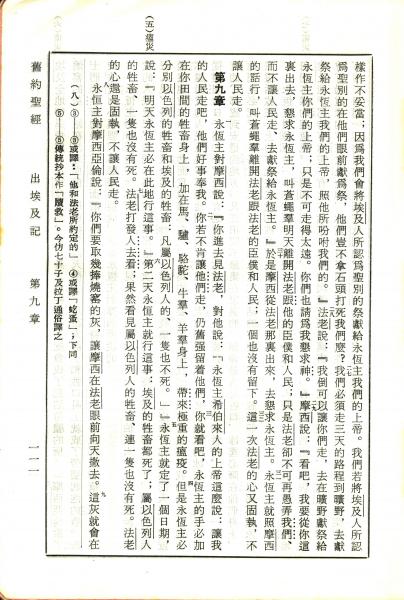 樣作不妥當;因爲我們會將埃及人所認爲聖別的祭獻給永恆主我們的上帝。我們若將埃及人所認
爲聖別的在他們眼前獻爲祭,他們豈不拿石頭打死我們麼?我們必須走三天的路程到曠野,去獻
祭給永恆主我們的上帝,照他所吩咐我們的。』法老說:『我倒可以讓你們走,去在曠野獻祭給
永恆主你們的上帝;只是不可走得太遠。你們也請爲我懇求神。』摩西說:『看吧,我要從你這
裏出去、懇求永恆主,叫蒼蠅羣明天離開法老跟他的臣僕和人民;只是法老卻不可再愚弄我們、
而不讓人民走、去獻祭給永恆主。』於是摩西從法老那裏出來、去懇求永恆主。永恆主就照摩西
的話行,叫蒼蠅羣離開法老跟法老的臣僕和人民;一個也沒有留下。這一次法老的心又固執,不
讓人民走。
第九章 永恆主對摩西說:『你進去見法老,對他說:「永恆主希伯來人的上帝這麼說:讓我
的人民走吧,他們好事奉我。你若不肯讓他們走,仍舊强留着他們,你就看吧,永恆主的手必加
在你田間的牲畜身上,加在馬、驢、駱駝、牛羣、羊羣身上,帶來極重的瘟疫。但是永恆主必
分別以色列的牲畜和埃及的牲畜:凡屬以色列人的、一隻也不死。」』永恆主就定了一個日期,
說:『明天永恆主必在此地行這事。』第二天永恆主就行這事:埃及的牲畜都死了;屬以色列人
的牲畜、一隻也沒有死。法老打發人去看;果然看見屬以色列人的牲畜、連一隻也沒有死。法老
的心還是固執,不讓人民走。
永恆主對摩西亞倫說:『你們要取幾捧燒窰的灰,讓摩西在法老眼前向天撒去。這灰就會在
(五)瘟災
(八)③—③或譯:『他和法老所約定的』 ④或譯『虻蚤』;下同
⑤—⑤傳統抄本作『贖救』。今仿七十子及拉丁通俗譯之
舊約聖經 出埃及記 第九章 一一一